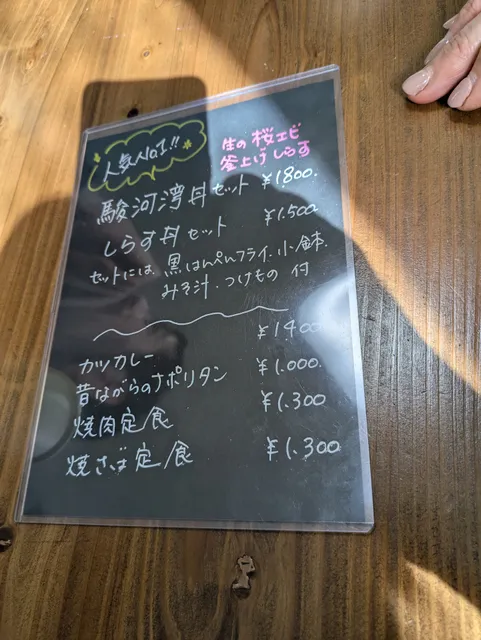 人気No.1!!
生の桜エビ
釜上げしらす
駿河湾丼セット ¥1800.
しらす丼セット ¥1.500
セットには、黒はんぺんフライ、小鉢.
みそ汁・つけもの 付
カツカレー ¥1400
昔ながらのナポリタン ¥1.000.
焼肉定食 ¥1.300
焼さば定食 ¥1.300